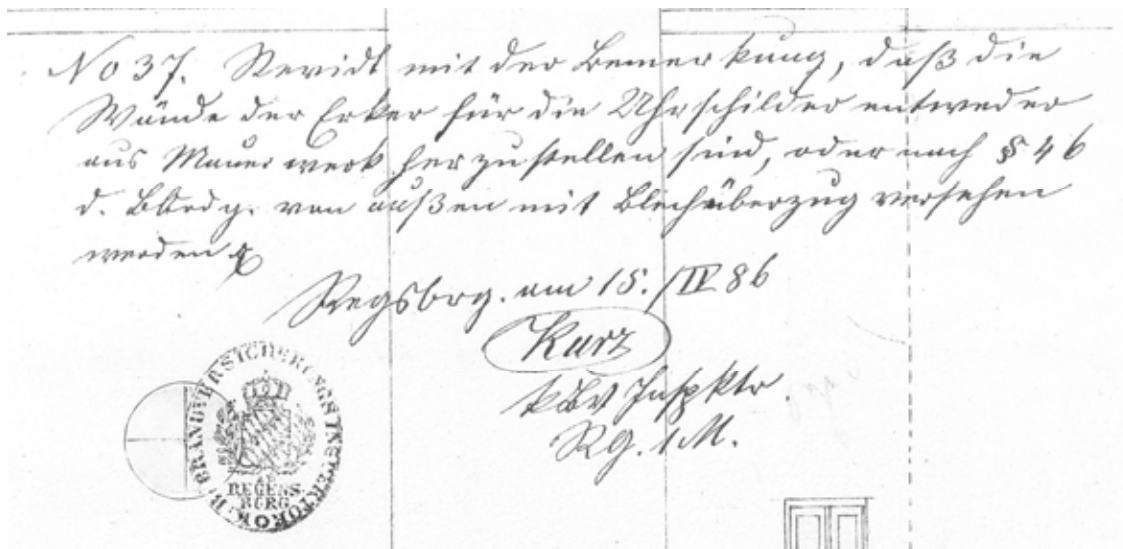 No 37. Revidt mit der Bemerkung, daß die
Wände der Erker für die Uhrschilder entweder
aus Mauerwerk herzustellen sind, oder nach § 46
d. Bordg. von außen mit Blechüberzug versehen
werden
Regsbrg. am 15./IV 86
Kurz
Inspktr.
K. B. BRANDVERSICHERUNGSINSPEKTOR
REGENS-
BURG